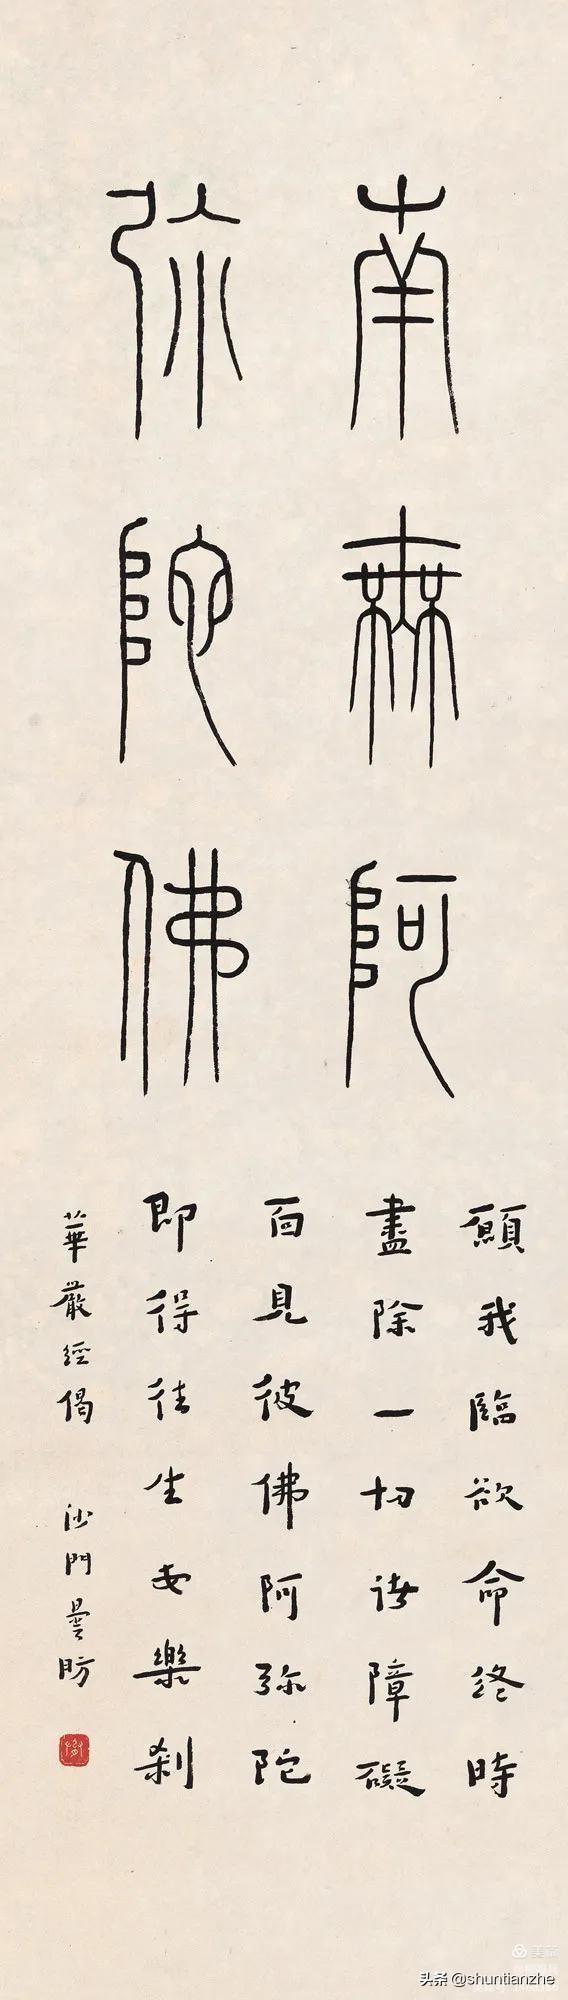 南無阿
弥陀佛
願我臨欲命終時
盡除一切諸障礙
面見彼佛阿弥陀
即得往生安樂刹
華嚴經偈 沙門曇昉
头条 @shuntianzhe